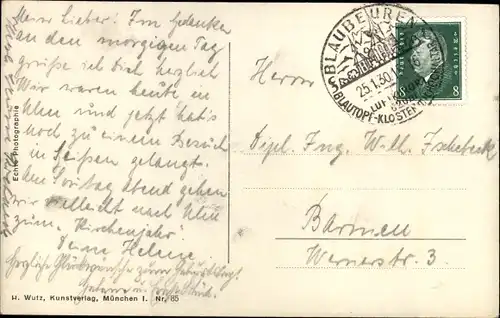 Mein Lieber! Im Gedanken
an den morgigen Tag
grüße ich Dich herzlich
Wir waren heute in
Ulm und jetzt hat's
noch zu einem Besuch
in gelangt.
Am Sonntag Abend gehen
wir vielleicht nach Ulm
zum "Kirchenjahr".
Deine Helene
Herzliche Glückwünsche zum Geburtstag.
H. Wutz, Kunstverlag, München I. Nr. 85
Echte Photographie
BLAUBEUREN
25.1.30
LUFTKURORT
BLAUTOPF-KLOSTER
8 8
Herrn
Dipl. Ing. Wilh.
Barmen
Wernerstr. 3